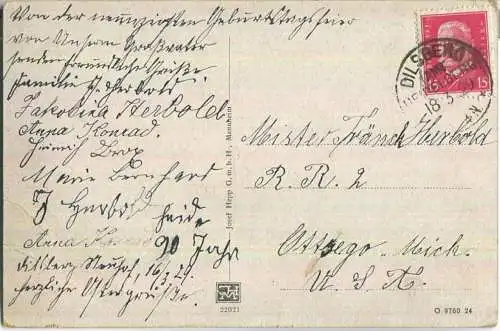 Von der neunzigsten Geburtstagsfeier
von Unserm Großvater
senden freundliche Grüße.
Familie J. Herbold
Jakobina Herbold
Anna Konrad.
Heinrich
Marie Bernhard
J Herbold
heute
Anna
90 Jahr
Neuhof, 16/3.29.
herzliche Ostergrüße.
Josef Hepp G.m.b.H., Mannheim
22021
DILSBERG
18.3.
15
15
Mister Fränck Herbold
R. R. 2
Ottsego. Mich.
U. S. A.
O 9760 24